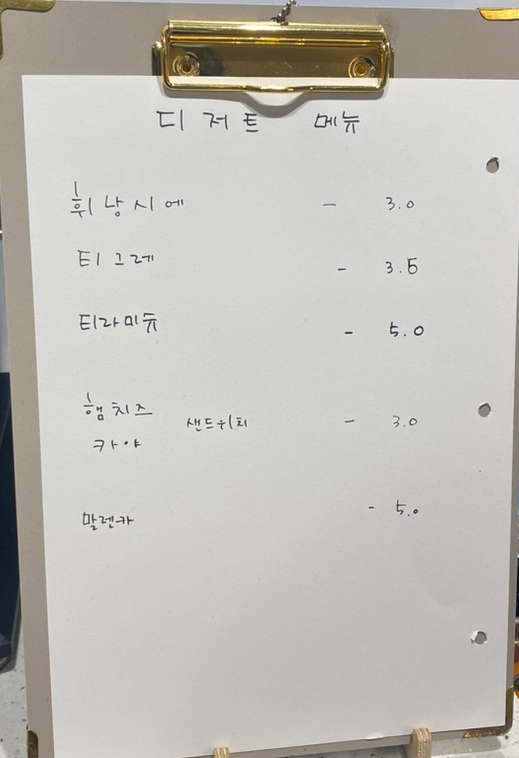 디저트 메뉴
휘낭시에 - 3.0
티그레 - 3.5
티라미듀 - 5.0
햄치즈 샌드위치 - 3.0
카야
말렌카 - 5.0